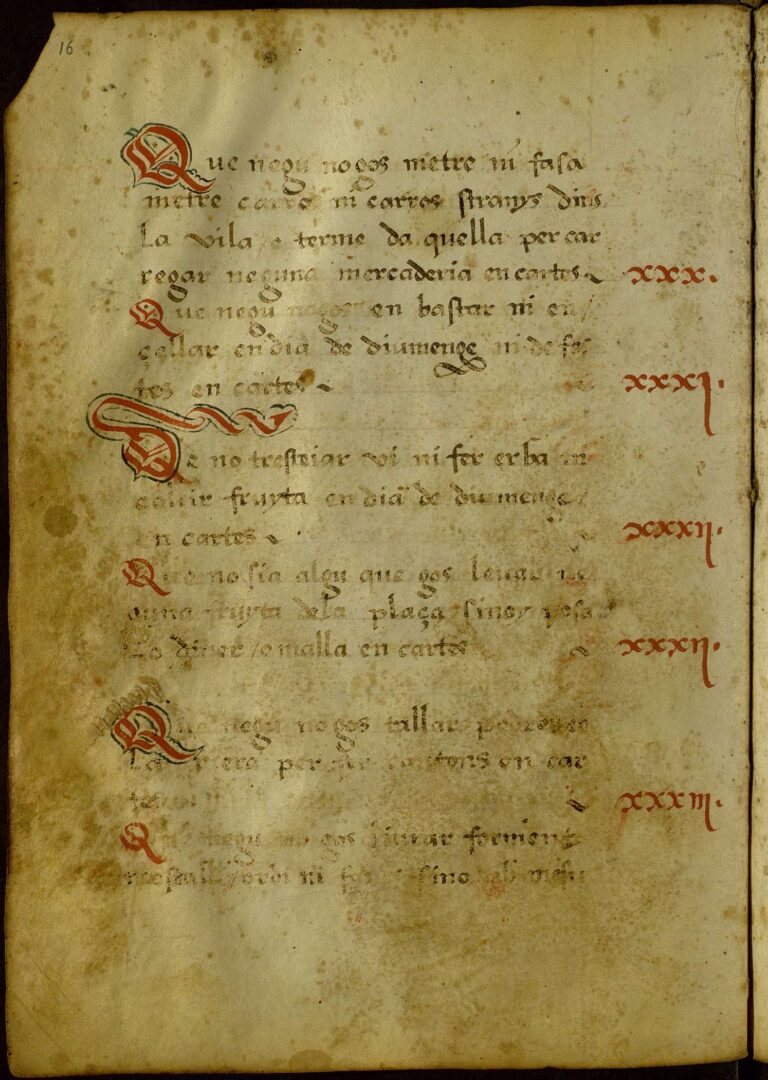 16
Que negu no gos metre ni fasa
metre carro ni carros stranys dins
La vila e terme da quella per car
regar neguna mercaderia en cartes xxx.
Que negu no gos en bastar ni en/
çellar en dia de diumenge ni de fes
tes en cartes xxxi.
De no trestejar vi ni fer erba ni
collir fruyta en dia de diumenge/
en cartes xxxii.
Que no sia algu que gos levar ne
guna fruyta dela plaça sinoy posa
Lo diner /o malla en cartes xxxii.
Que negu no gos tallar
La per en car
xxxiii.
Que negu no gos liurar forment
ordi ni sino ab mesu